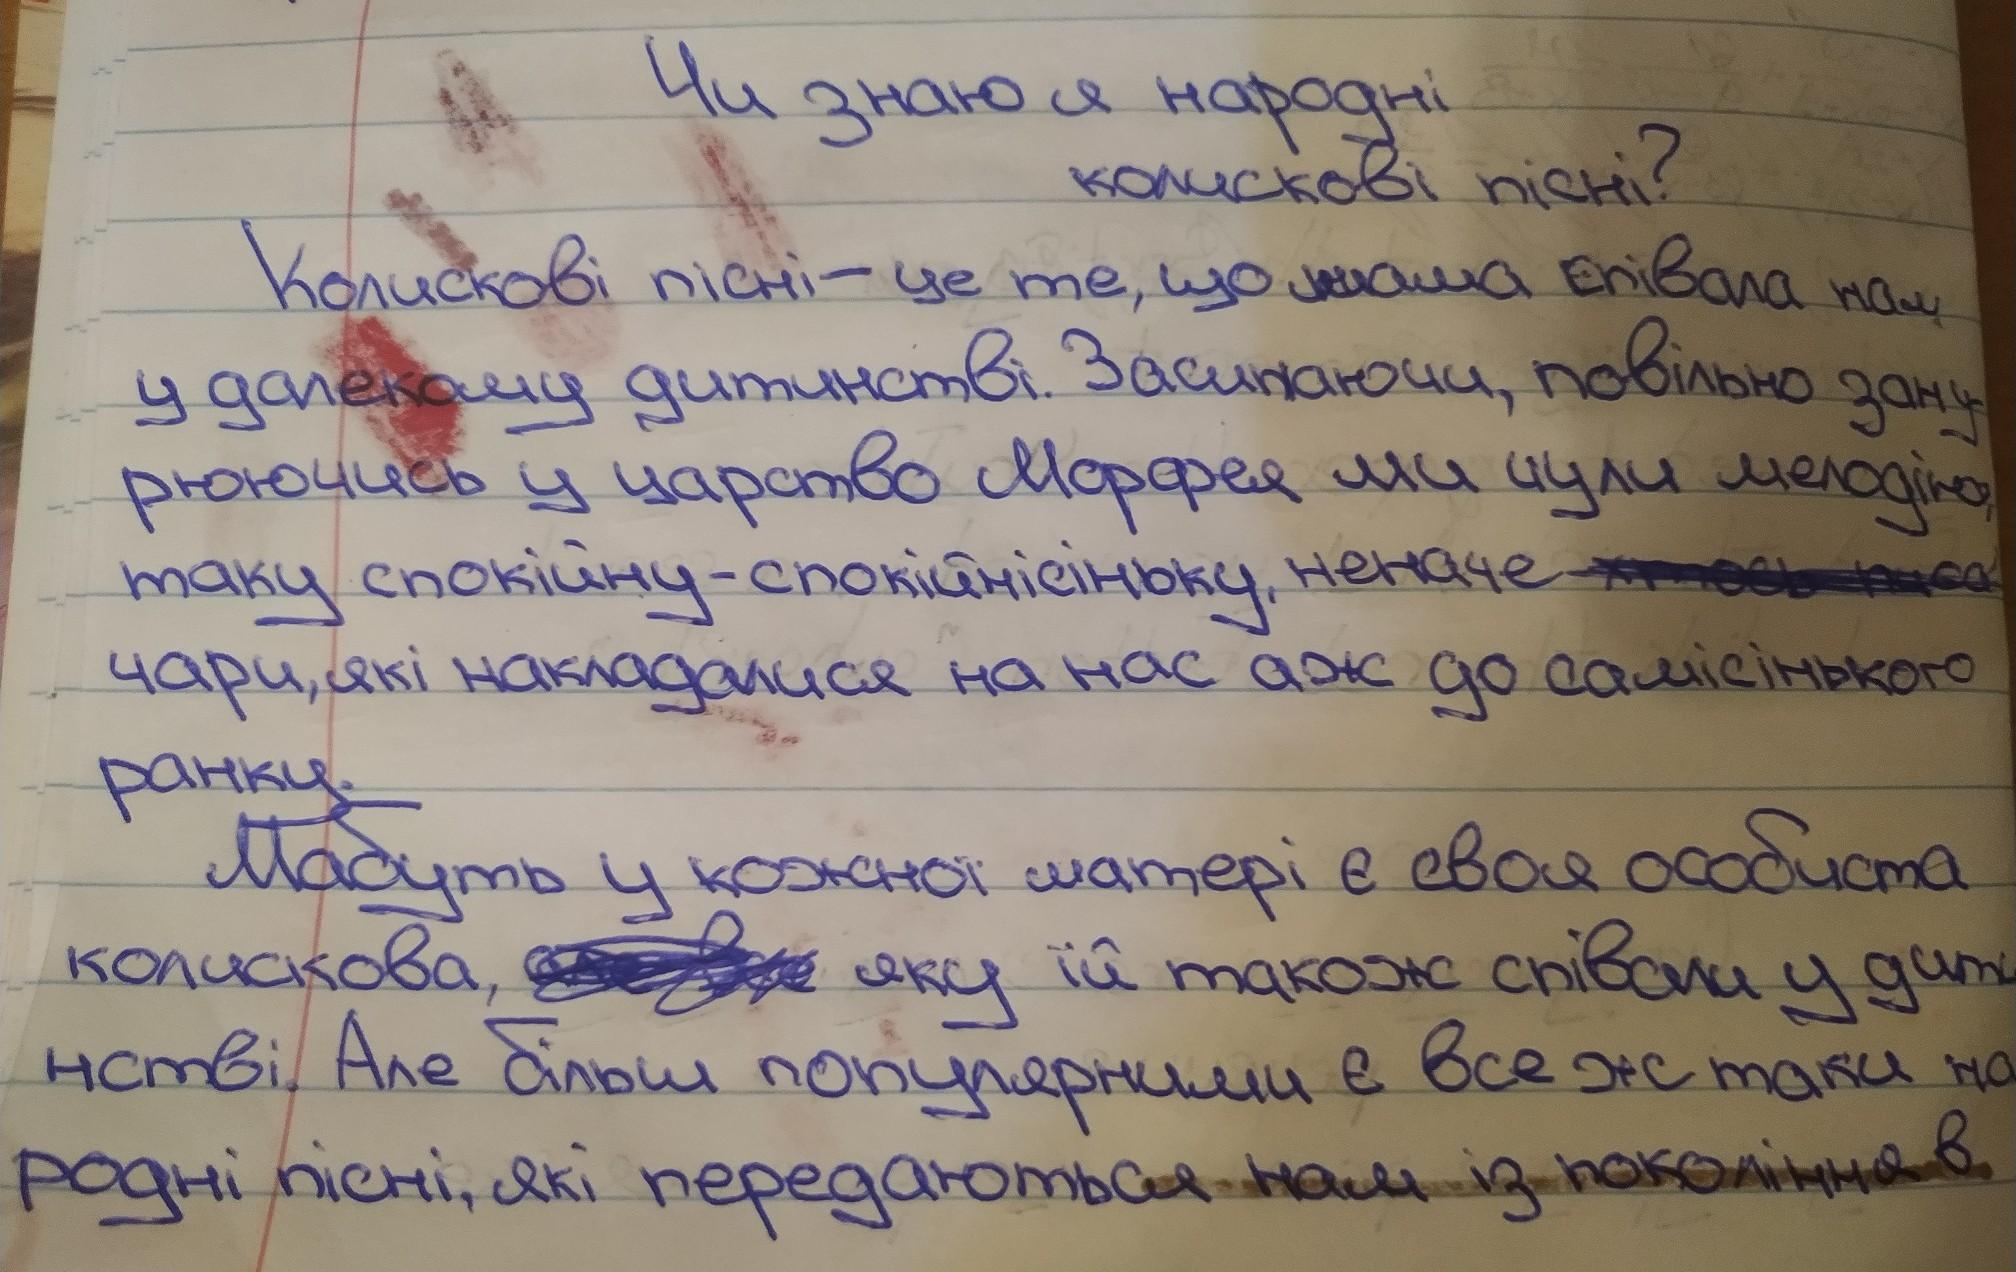 Чи знаю я народні
колискові пісні?
Колискові пісні – це те, що мама співала нам
у далекому дитинстві. Засинаючи, повільно зану
рюючись у царство Морфея ми чули мелодію,
таку спокійну-спокійнісіньку, неначе
чари, які накладалися на нас аж до самісінького
ранку.
Мабуть у кожної матері є своя особиста
колискова, яку їй також співали у дити
нстві. Але більш популярними є все ж таки на
родні пісні, які передаються нам із покоління в